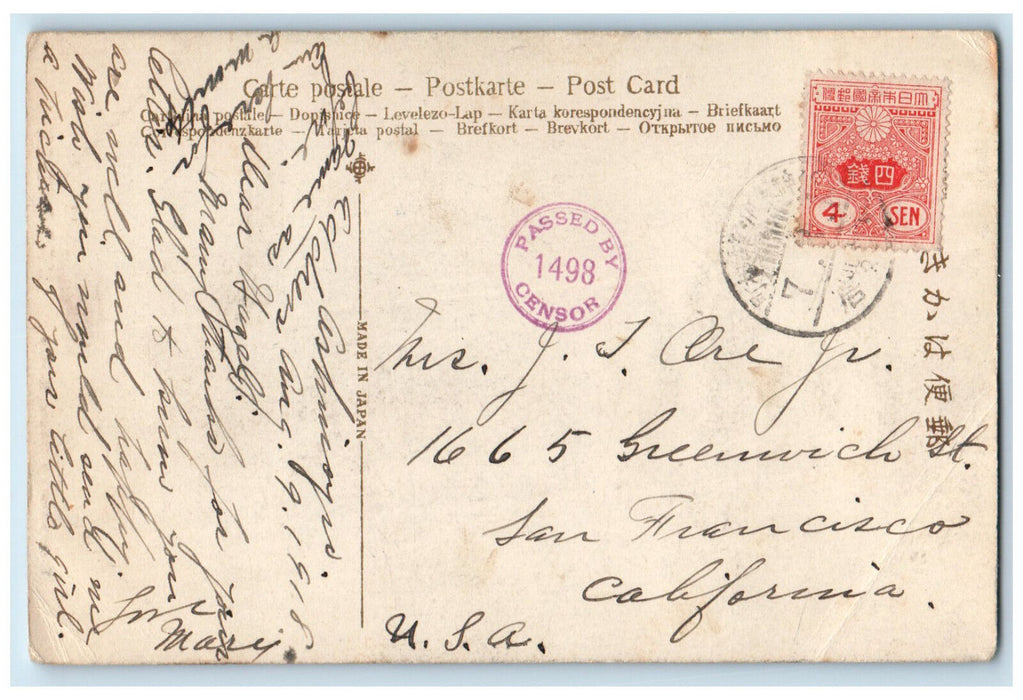 Carte postale — Postkarte — Post Card
postale — Dopisnice — Levelezo-Lap — Karta korespondencyjna — Briefkaart
Correspondenzkarte — Tarjeta postal — Brefkort — Brevkort — Открытое письмо
大日本帝國郵便
四錢
4 SEN
きかは便郵
PASSED BY
1498
CENSOR
MADE IN JAPAN
Address as
Aug. 9. 1918
Dear Hazel:
Many thanks for your
letter. Glad to hear you
are well and happy.
Wish you would send me
a picture of your little girl.
Love
Mary
Mrs. J. T. Orr Jr.
1665 Greenwich St.
San Francisco
California.
U.S.A.